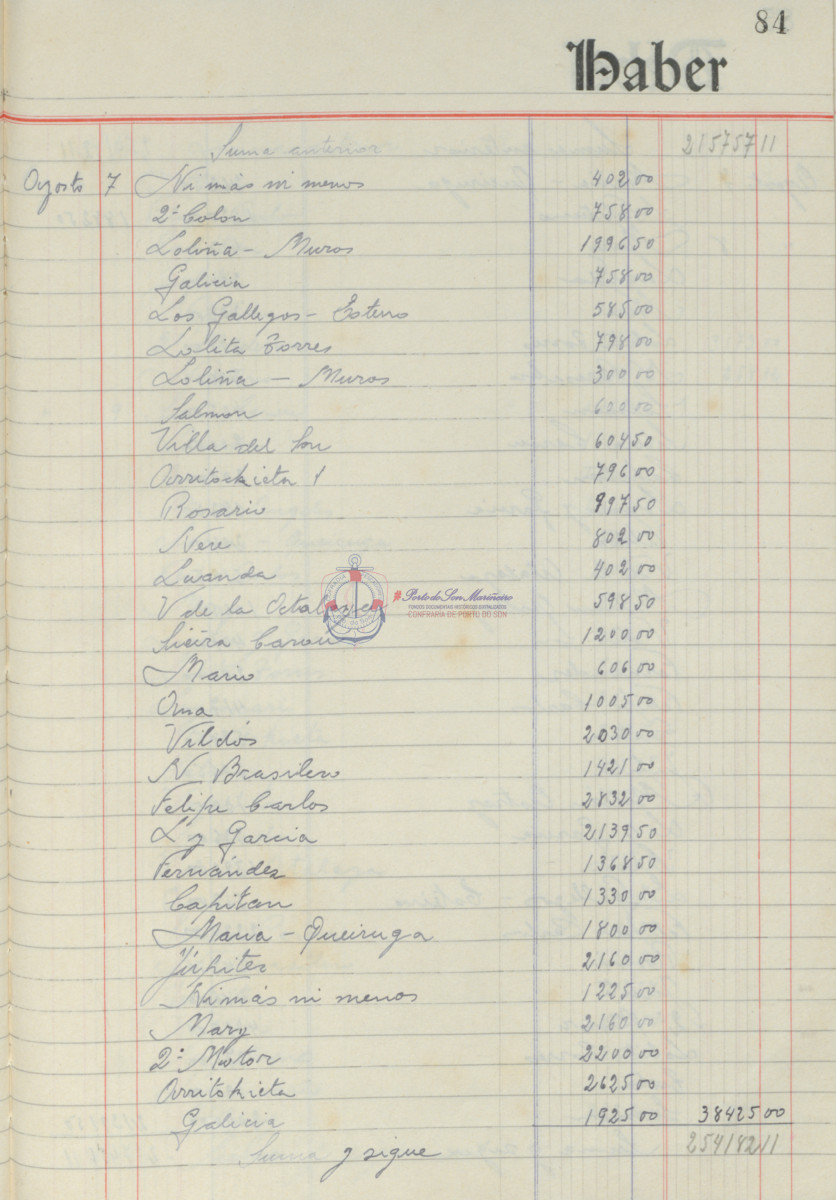 84
Haber
Suma anterior 215757 11
Agosto 7 Ni más ni menos 402 00
2º Colon 758 00
Loliña - Muros 1996 50
Galicia 758 00
Los Gallegos - Esteiro 585 00
Lolita Torres 798 00
Loliña - Muros 300 00
Salmon 600 00
Villa del Son 604 50
Arritokieta 1 796 00
Rosario 997 50
Nere 802 00
Luanda 402 00
V de la 598 50
Sieira 1200 00
Mario 606 00
Ana 1005 00
Vildós 2030 00
N Brasilero 1421 00
Felipe Carlos 2832 00
L y Garcia 2139 50
Fernández 1368 50
Capitan 1330 00
Maria - Queiruga 1800 00
Júpiter 2160 00
Ni más ni menos 1225 00
Mary 2160 00
2º Motor 2200 00
Arritokieta 2625 00
Galicia 1925 00 38425 00
Suma y sigue 254182 11
#Porto do Son Mariñeiro
FONDOS DOCUMENTAIS HISTÓRICOS DIXITALIZADOS
CONFRARÍA DE PORTO DO SON